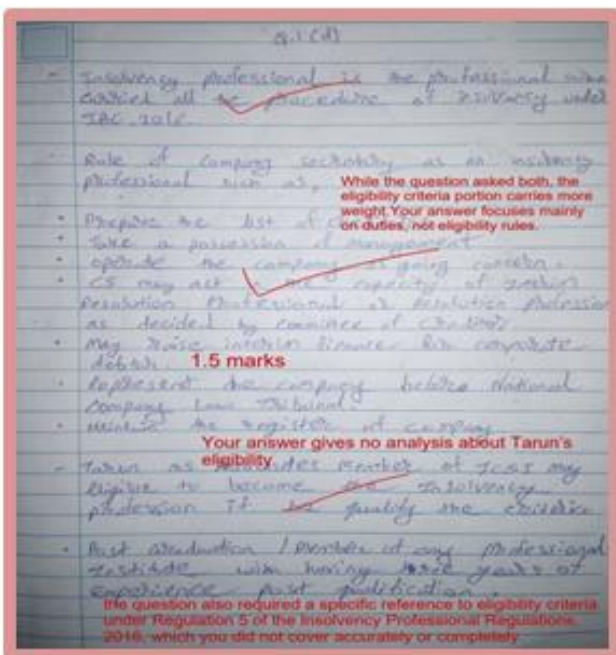 Q.1(d)
- Insolvency professional is the professional who
carried all the procedure of insolvency under
IBC, 2016.
Role of company secretary as an insolvency
professional such as,
While the question asked both, the
eligibility criteria portion carries more
weight.Your answer focuses mainly
on duties, not eligibility rules.
Prepare the list of
Take a possession of management
operate the company as going concern.
CS may act the capacity of
Resolution Professional or Resolution Profession
as decided by committee of creditor
May raise interim finance for corporate
debtor.
1.5 marks
Represent the company before National
Company Law Tribunal.
the register of company
Your answer gives no analysis about Tarun's
eligibility
- Tarun as member of ICSI may
eligible to become Insolvency
profession if quality the criteria
Post Graduation / member of any professional
institute with having years of
experience post qualification.
the question also required a specific reference to eligibility criteria
under Regulation 5 of the Insolvency Professional Regulations,
2016, which you did not cover accurately or completely